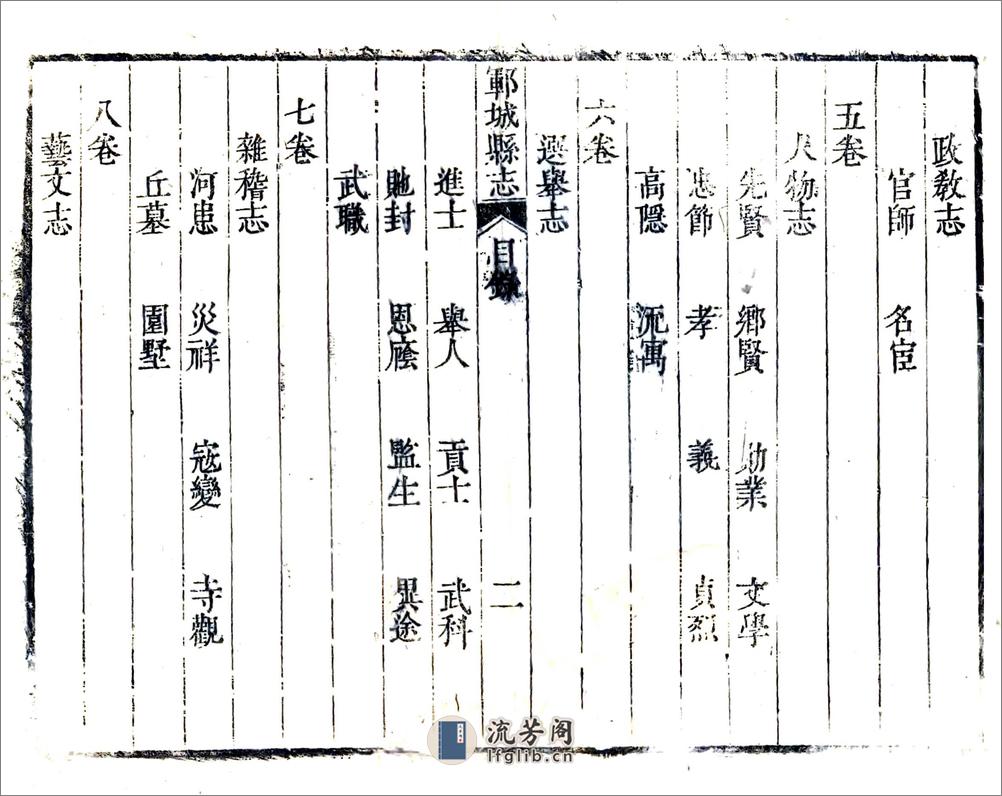 政敎志
官師 名宦
五卷
人物志
先賢 鄉賢 勛業 文學
忠節 孝 義 貞烈
高隱 流寓
六卷
選舉志
鄆城縣志 目錄 二
進士 舉人 貢士 武科
貤封 恩廕 監生 異途
武職
七卷
雜稽志
河患 災祥 寇變 寺觀
丘墓 園墅
八卷
藝文志
流芳阁
lfglib.cn